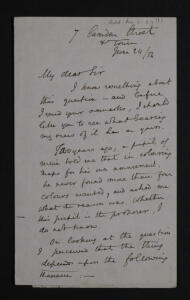 7 Camden Street
Town
June 24/52
My dear Sir
I know something about
this question — and before
I send your remarks, I should
like you to see what bearing
my view of it has on yours.
Two years ago, a pupil of
mine told me that in colouring
maps for his own amusement,
he never found more than four
colours wanted, and asked me
what the reason was. Whether
this pupil is the professor, I
do not know.
On looking at the question
I perceived that the thing
depends upon the following